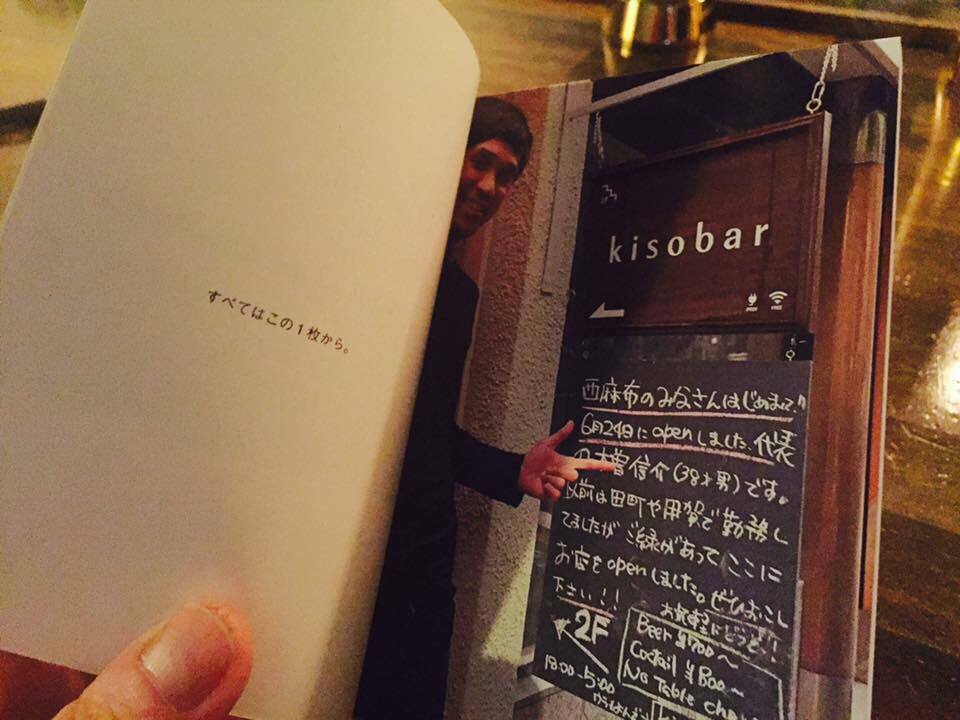 すべてはこの1枚から。
kisobar
FREE
西麻布のみなさんはじめまして!!
6月24日にopenしました、代表
の木曽信介(38才男)です。
以前は田町や用賀で勤務し
てましたがご縁があってここに
お店をopenしました。ぜひおこし
下さい!!
お気軽にどうぞ!!
2F
Beer ¥700〜
Cocktail ¥800〜
No Table char
18:00-5:00